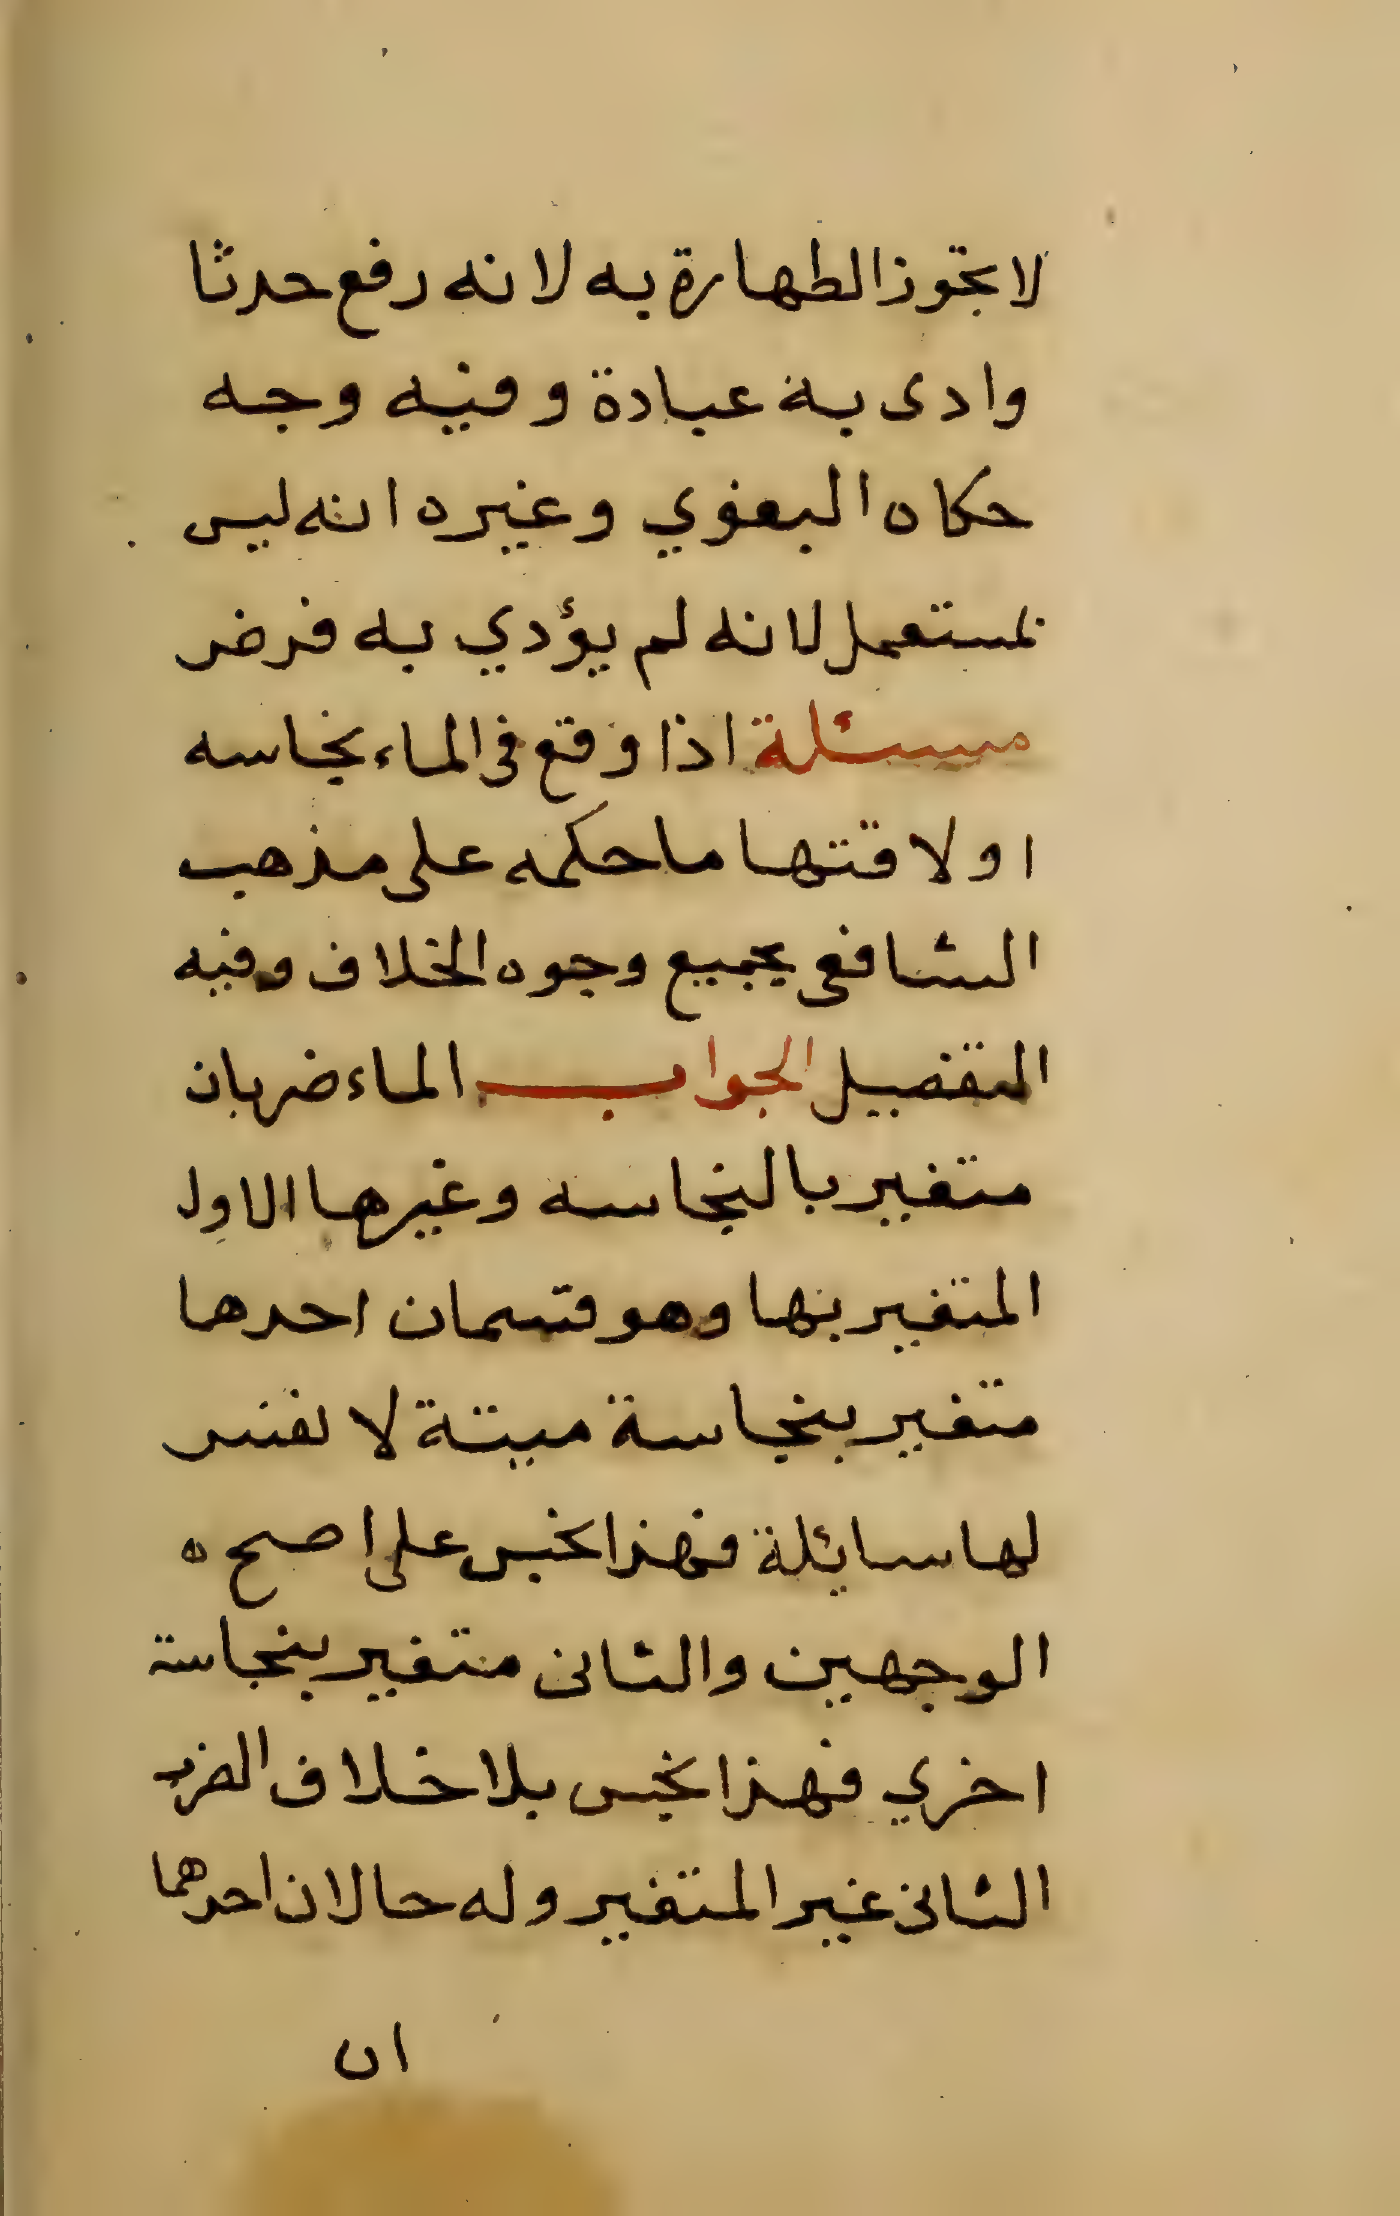 لا تجوز الطهارة به لانه رفع حدثا
وادى به عبادة وفيه وجه
حكاه البغوي وغيره انه ليس
بمستعمل لانه لم يؤدي به فرض
مسئلة اذا وقع في الماء نجاسه
او لاقتها ما حكمه على مذهب
الشافعى بجميع وجوه الخلاف وفيه
التفصيل الجواب الماء ضربان
متغير بالنجاسه وغيرها الاول
المتغير بها وهو قسمان احدها
متغير بنجاسة ميتة لا نفس
لها سايئلة فهذا نجس على اصح ه
الوجهين والثانى متغير بنجاسة
اخري فهذا نجس بلا خلاف الضرب
الثانى غير المتغير وله حالان احدهما
ان